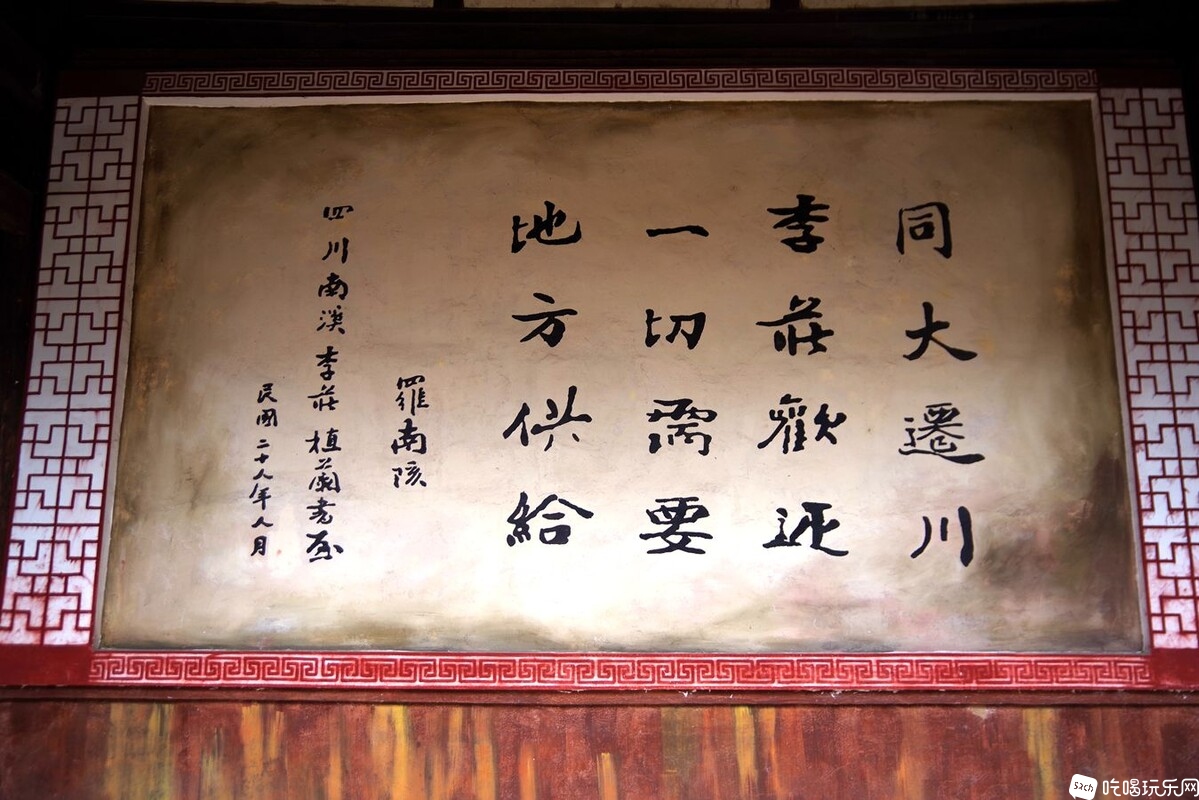 同大遷川
李莊歡迎
一切需要
地方供給
羅南陔
四川南溪李莊植蘭書屋
民國二十八年八月
吃喝玩乐网